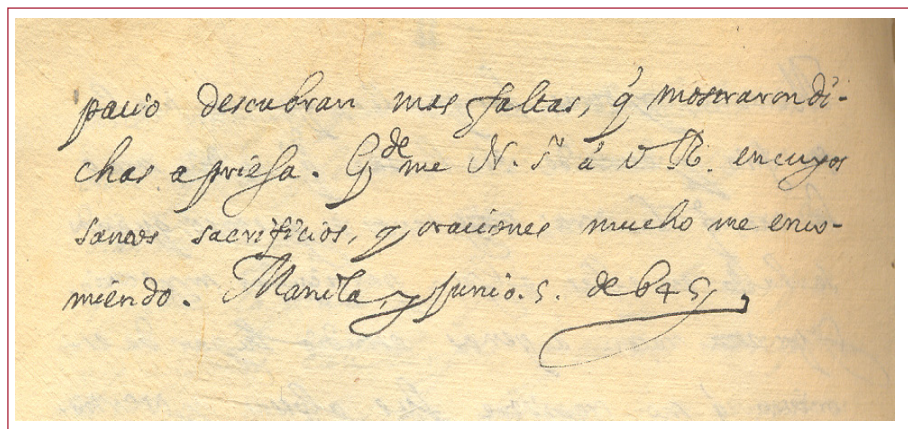 pacio descubran mas faltas, q̃ mostraron di-
chas apriessa. G.de me N. Sr a V R. en cuyos
sanctos sacrificios, y oraciones mucho me enco-
miendo. Manila, y Junio. 5. de 645,